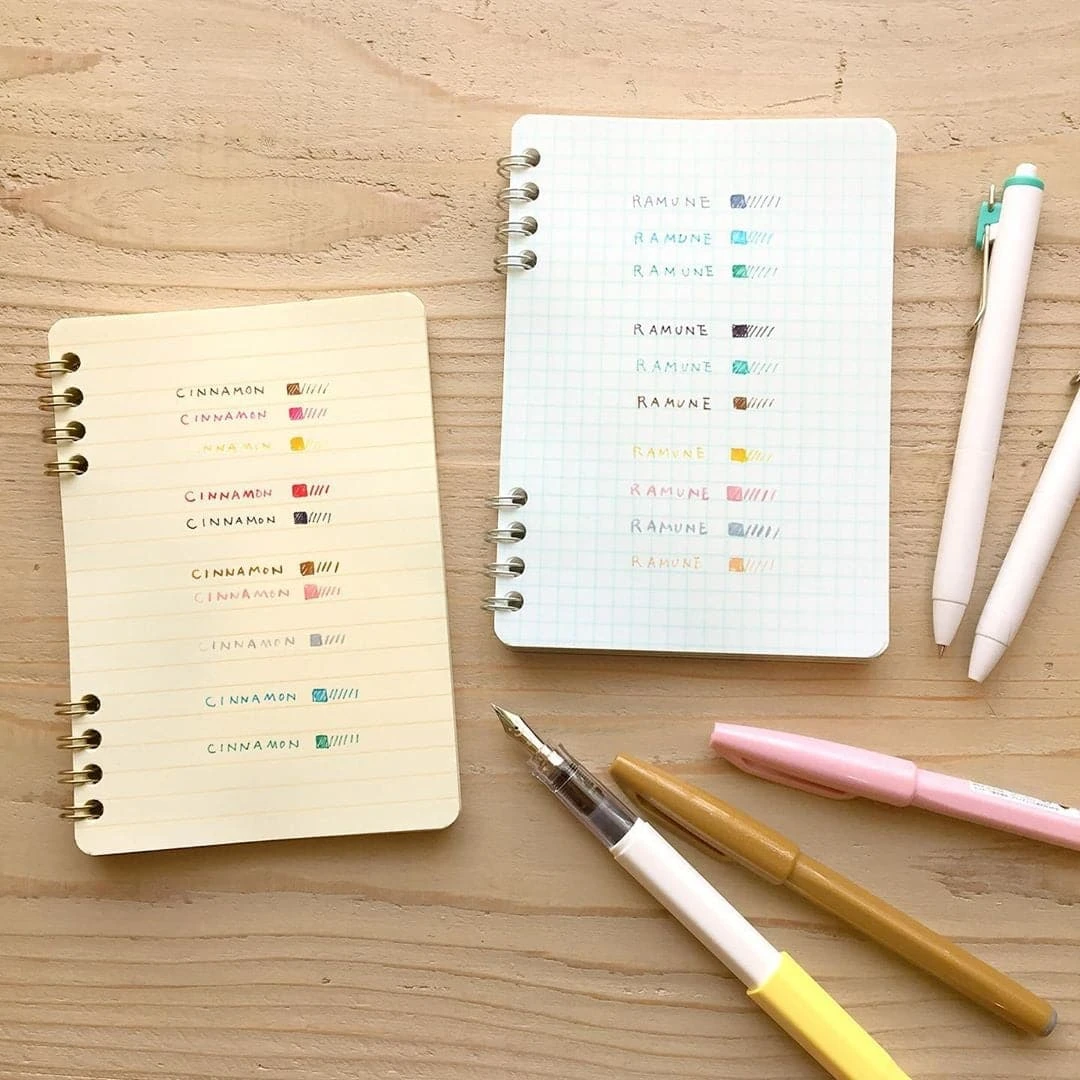 CINNAMON
CINNAMON
CINNAMON
CINNAMON
CINNAMON
CINNAMON
CINNAMON
CINNAMON
CINNAMON
CINNAMON
RAMUNE
RAMUNE
RAMUNE
RAMUNE
RAMUNE
RAMUNE
RAMUNE
RAMUNE
RAMUNE
RAMUNE